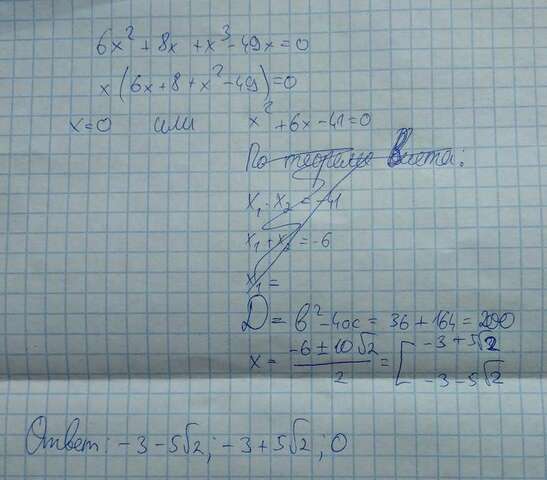 6x² + 8x + x³ - 49x = 0
x(6x + 8 + x² - 49) = 0
x = 0 или x² + 6x - 41 = 0
По теореме Виета:
x₁ · x₂ = -41
x₁ + x₂ = -6
x₁ =
D = b² - 4ac = 36 + 164 = 200
x = (-6 ± 10√2)/2 = [ -3 + 5√2
-3 - 5√2
Ответ: -3 - 5√2; -3 + 5√2; 0